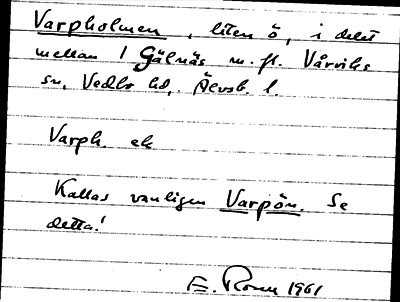 Varpholmen, liten ö, i delet
mellan 1 Gälnäs m. fl. Vårviks
sn, Vedbo hd, Älvsb. l.
Varph. ek
Kallas vanligen Varpön. Se
detta!
E. Rosen 1961